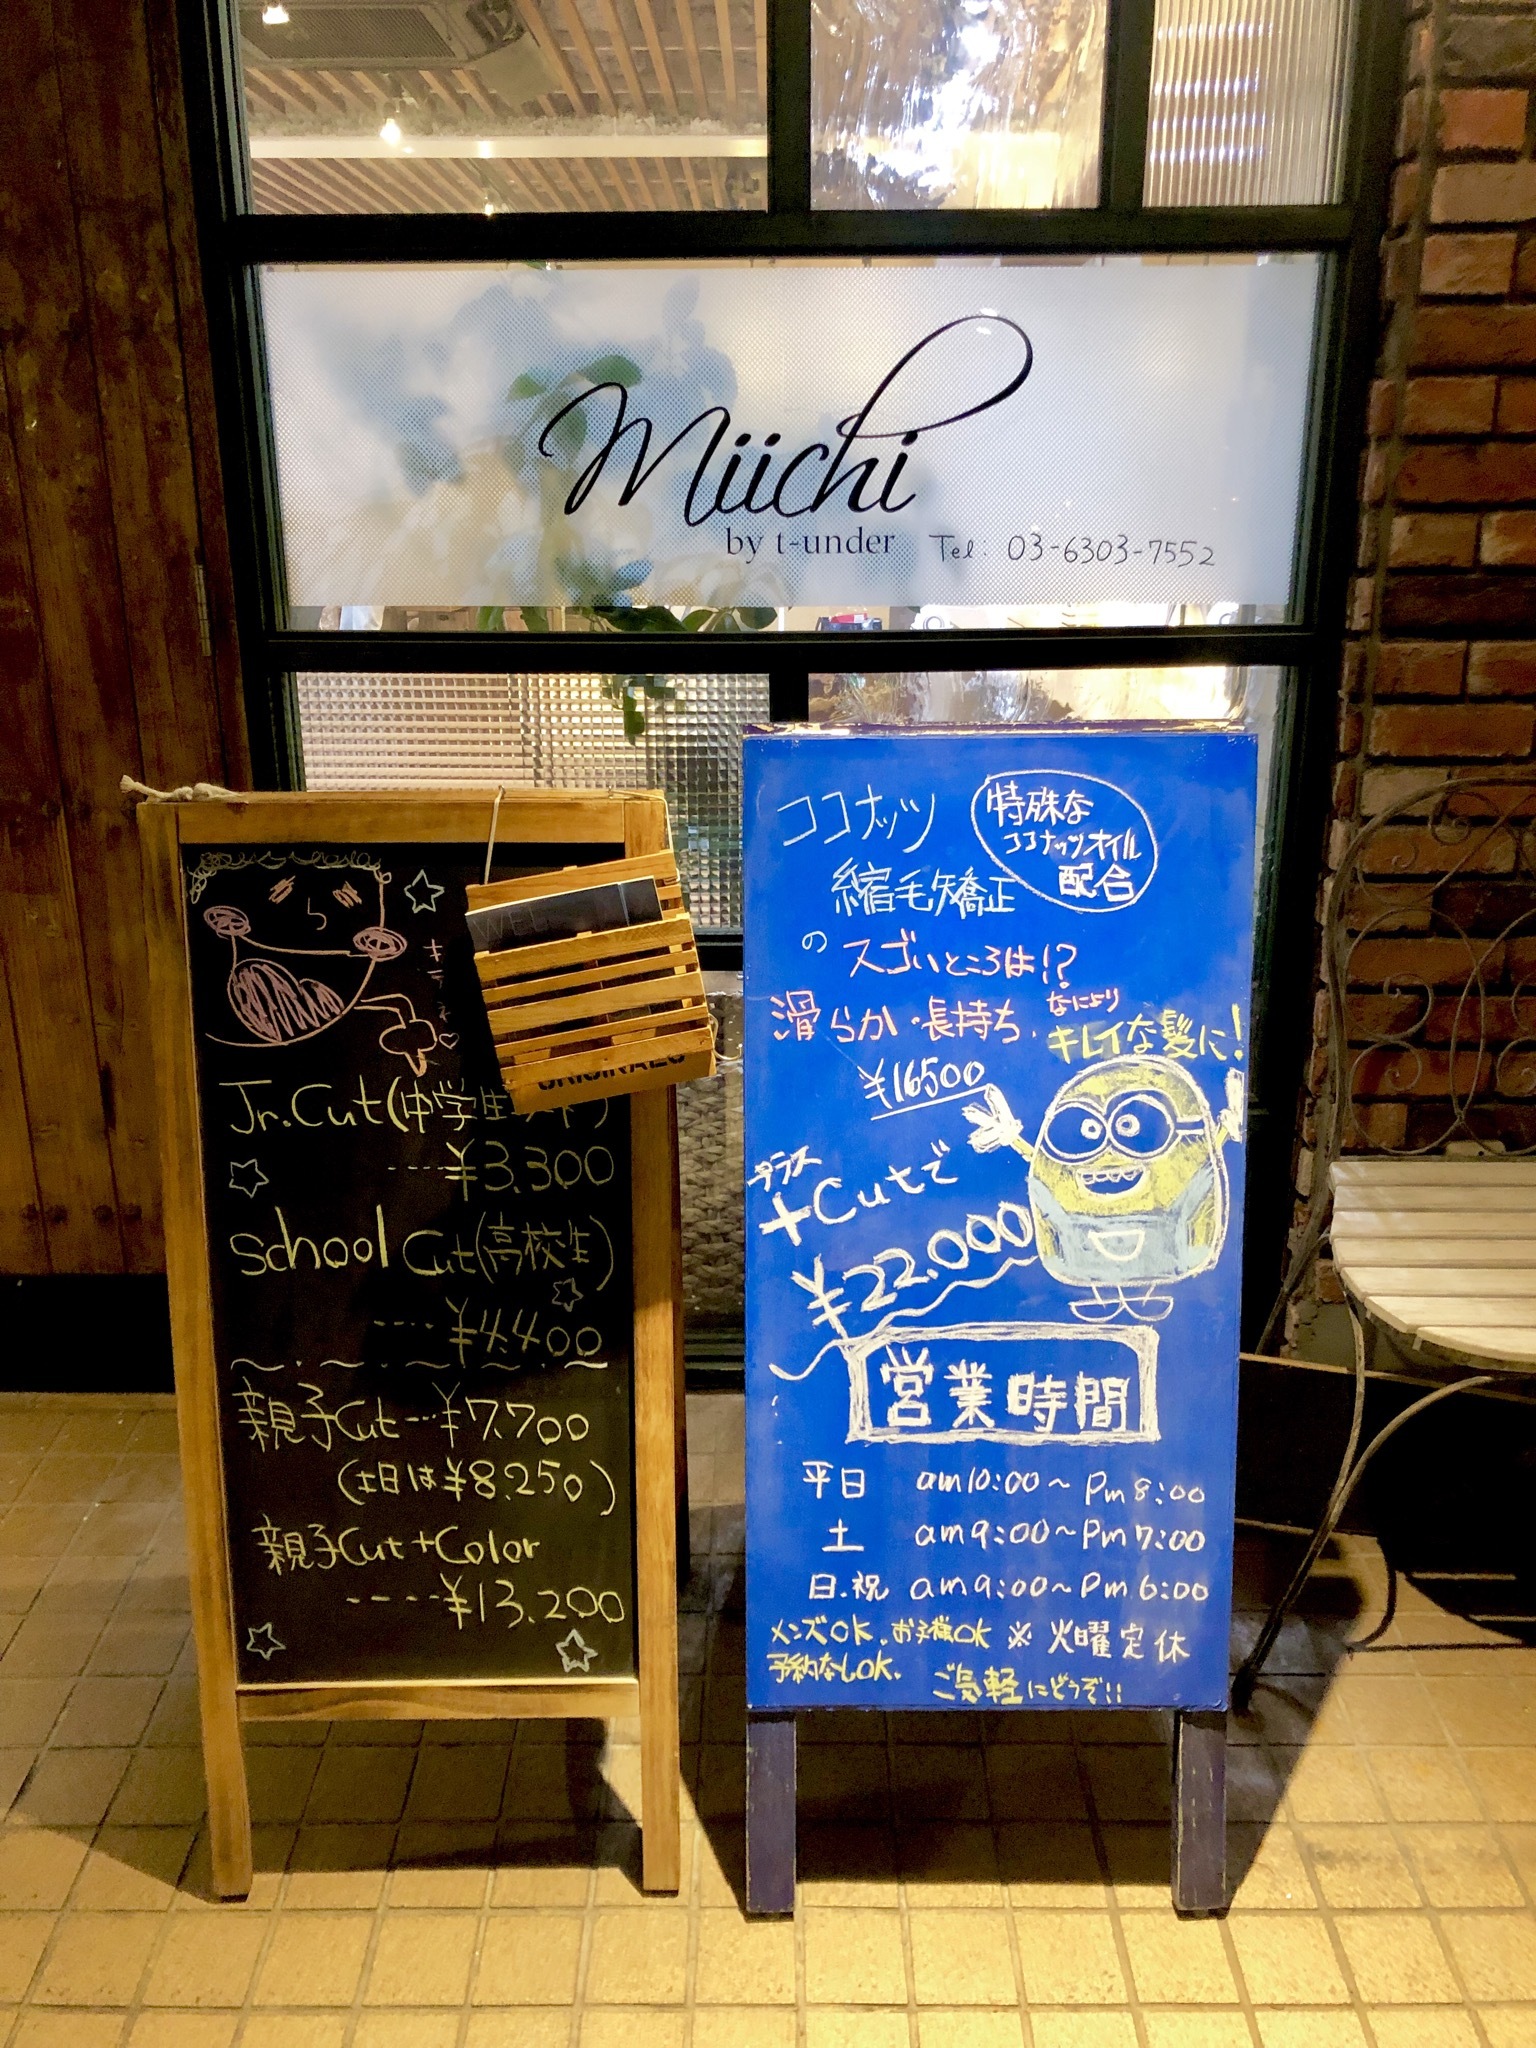 Miichi
by t-under
Tel: 03-6303-7552
キラキ♡
WEL
ORIGINALS
Jr.Cut(中学生以下)
----¥3.300
School Cut(高校生)
----¥4.400
親子Cut---¥7.700
(土日は¥8.250)
親子Cut+Color
----¥13.200
ココナッツ
特殊な
ココナッツオイル
配合
縮毛矯正
の スゴいところは!?
滑らか・長持ち、なにより
キレイな髪に!
¥16500
プラス
+Cutで
¥22.000
営業時間
平日 am10:00~Pm8:00
土 am9:00~Pm7:00
日.祝 am9:00~Pm6:00
メンズOK.お子様OK ※火曜定休
予約なしOK. ご気軽にどうぞ!!